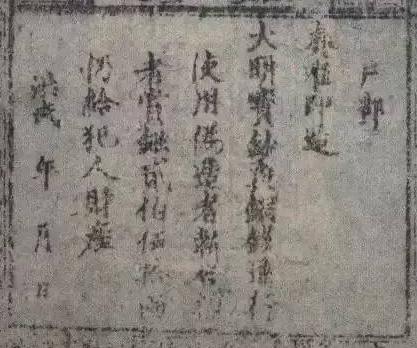 戶部
奏准印造
大明寶鈔與銅錢通行
使用偽造者斬告捕
者賞銀貳伯伍拾兩
仍給犯人財產
洪武 年 月 日